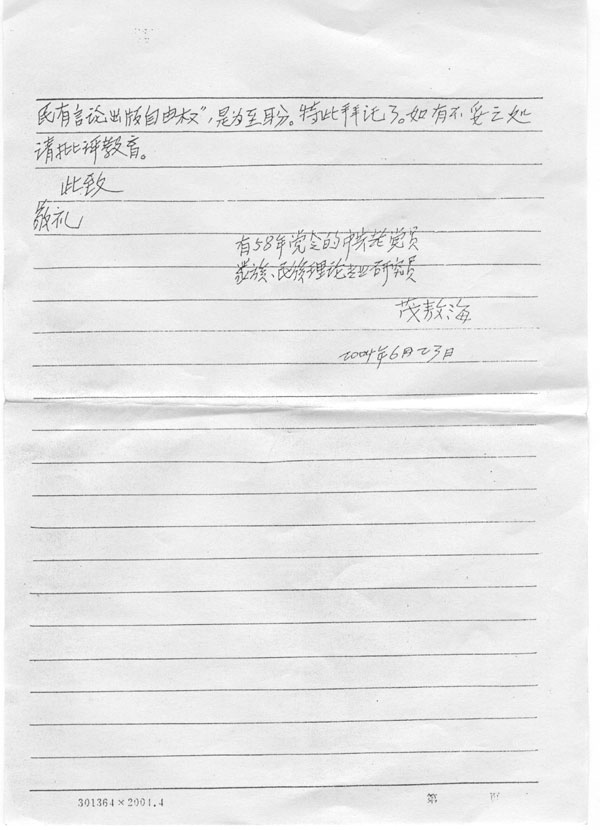 民有言论出版自由权”，是为至盼。特此拜托了。如有不妥之处
请批评教育。
此致
敬礼
有58年党令的中共老党员
蒙族、民族理论专业研究员
茂敖海
2004年6月23日
301364×2001.4
第 页